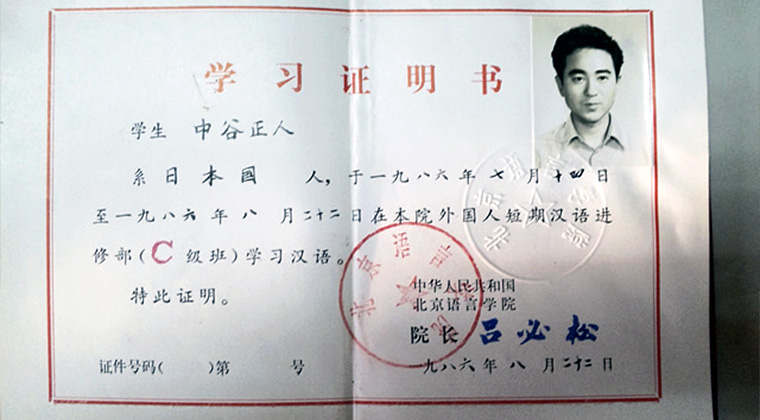 学习证明书
学生 中谷正人
系日本国 人，于一九八六年七月十四日
至一九八六年八月二十二日在本院外国人短期汉语进
修部（C级班）学习汉语。
特此证明。
北京语言学院
北京语言学院
中华人民共和国
北京语言学院
院长 吕必松
证件号码（ ）第 号
一九八六年八月二十二日